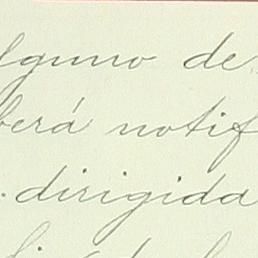 lguno de
berá notif
. dirigida